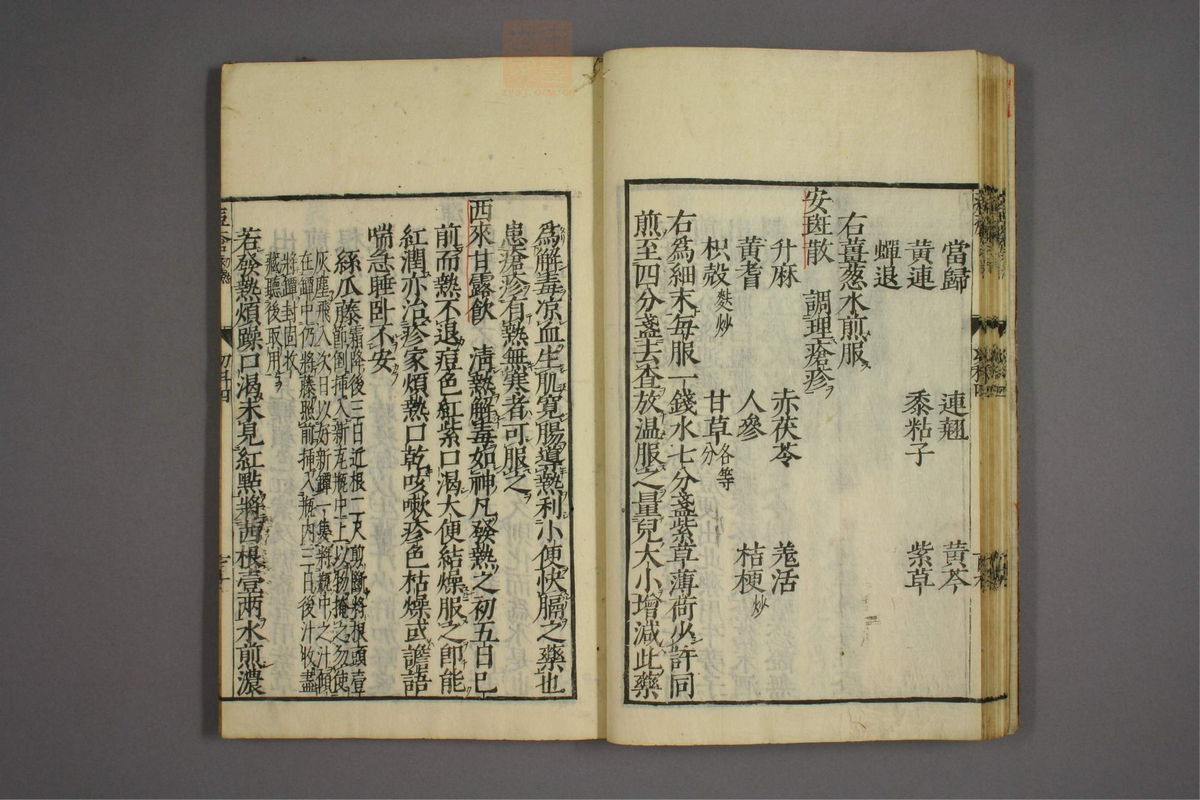 當歸　連翹　黃芩
黃連　黍粘子　紫草
蟬退
右薑葱水煎服
安斑散　調理瘡疹
升麻　赤茯苓　羗活
黃耆　人參　桔梗炒
枳殼麩炒　甘草各等分
右爲細末每服一錢水七分盞紫草薄荷少許同
煎至四分盞去査放温服之量兒大小增減此藥
爲解毒凉血生肌寬腸導熱利小便快膈之藥也
患瘡疹有熱無寒者可服之
西來甘露飲　淸熱解毒如神凡發熱之初五日已
前而熱不退痘色紅紫口渴大便結燥服之卽能
紅潤亦治疹家煩熱口乾咳嗽疹色枯燥或譫語
喘急睡卧不安
絲瓜藤霜降後三百近根二尺剪斷將根頭壹
節倒挿入新瓦瓶中上以物掩之勿使
灰塵飛入次日以好新罈一隻將瓶中之汁傾
在罈中仍將藤照前挿入瓶內三日後汁收盡
將罈封固收
藏聽後取用
若發熱煩躁口渴未見紅點將茜根壹兩水煎濃